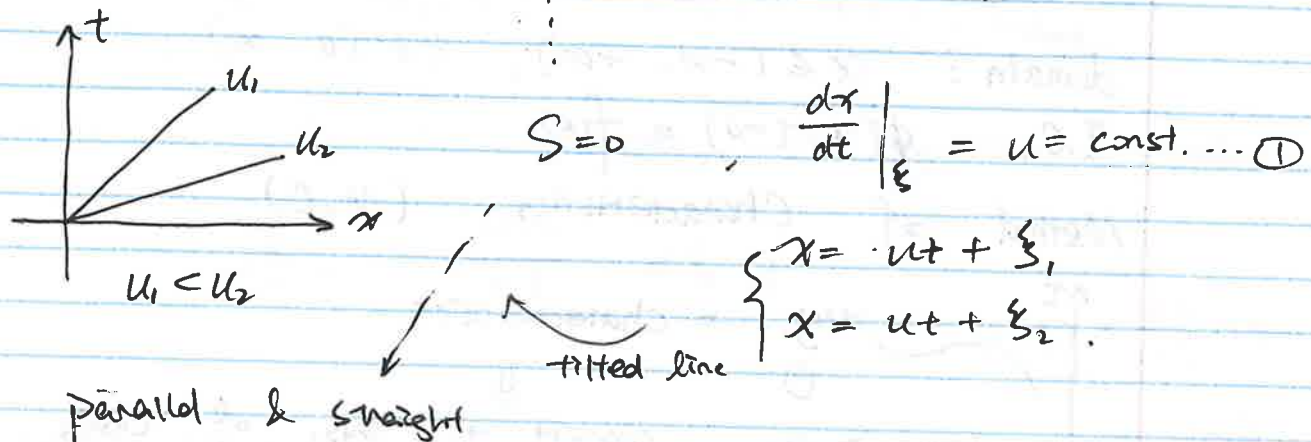 t
u₁
u₂
x
u₁ < u₂
S=0 , dx/dt |ξ = u = const. .... ①
{ x = ut + ξ₁
x = ut + ξ₂ .
tilted line
parallel & straight